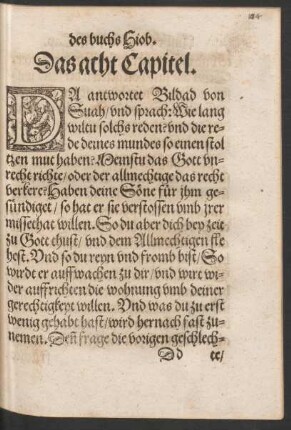 des buchs Hiob.
Das acht Capitel.
DA antwortet Bildad von
Suah / vnd sprach: Wie lang
wiltu solchs reden? vnd die re-
de deines mundes so einen stol
tzen mut haben? Meinstu das Gott vn-
recht richte / oder der allmechtige das recht
verkere? Haben deine Söne für jhm ge-
sündiget / so hat er sie verstossen vmb jrer
missethat willen. So du aber dich bey zeit
zu Gott thust / vnd dem Allmechtigen fle
hest. Vnd so du reyn vnd fromb bist / So
wirdt er auffwachen zu dir / vnd wirt wi-
der auffrichten die wohnung vmb deiner
gerechtigkeyt willen. Vnd was du zu erst
wenig gehabt hast / wird hernach fast zu-
nemen. Deñ frage die vorigen geschlech-
Dd te /